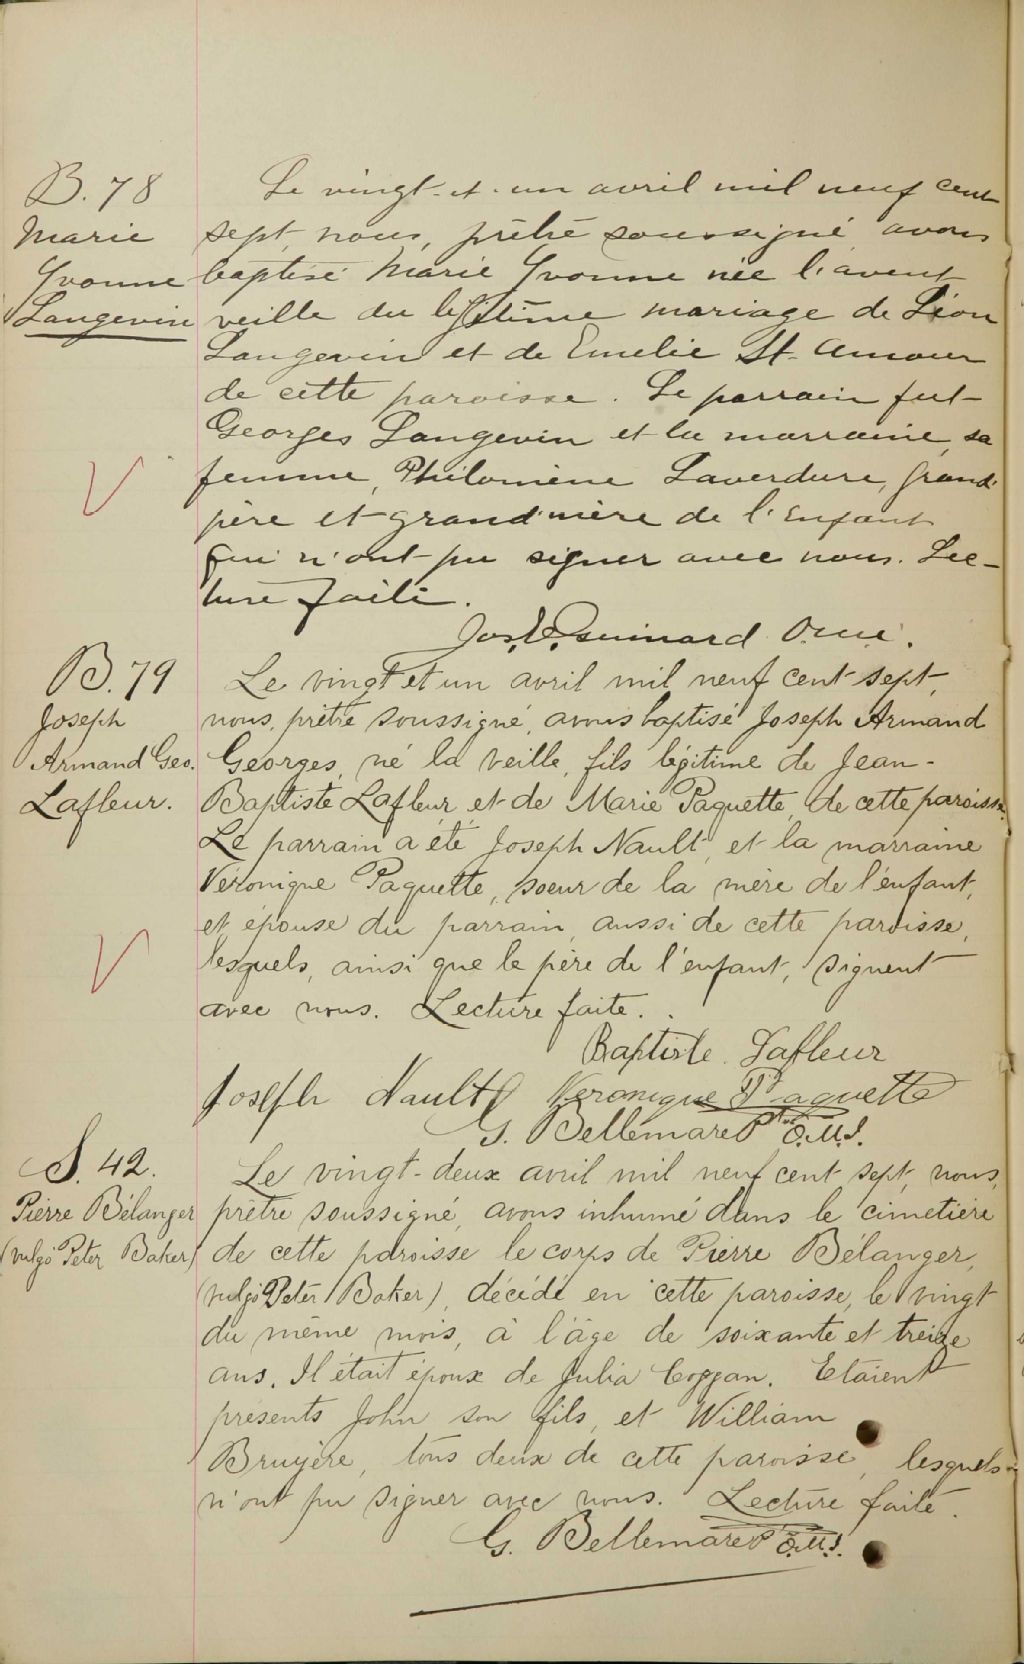 B. 78
Marie
Yvonne
Langevin
Le vingt-et-un avril mil neuf cent
sept, nous, prêtre soussigné avons
baptisé Marie Yvonne née l'avant
veille du légitime mariage de Léon
Langevin et de Emelie St-Amour
de cette paroisse. Le parrain fut
Georges Langevin et la marraine, sa
femme, Philomène Laverdure, grand-
père et grand'mère de l'Enfant
qui n'ont pu signer avec nous. Lec-
ture faite.
Jos. E. Guinard O.m.i.
B. 79
Joseph
Armand Geo.
Lafleur.
Le vingt et un avril mil neuf cent sept,
nous, prêtre soussigné, avons baptisé Joseph Armand
Georges, né la veille, fils légitime de Jean-
Baptiste Lafleur et de Marie Paquette, de cette paroisse.
Le parrain a été Joseph Nault, et la marraine
Véronique Paquette, soeur de la mère de l'enfant,
et épouse du parrain, aussi de cette paroisse,
lesquels, ainsi que le père de l'enfant, signent
avec nous. Lecture faite.
Baptiste Lafleur
Joseph Nault Veronique Paquette
G. Bellemare Ptre O.M.I.
S. 42.
Pierre Bélanger
(vulgò Peter Baker)
Le vingt-deux avril mil neuf cent sept, nous,
prêtre soussigné, avons inhumé dans le cimetière
de cette paroisse le corps de Pierre Bélanger,
(vulgò Peter Baker), décédé en cette paroisse, le vingt
du même mois, à l'âge de soixante et treize
ans. Il était époux de Julia Coggan. Etaient
présents John son fils, et William
Bruyère, tous deux de cette paroisse, lesquels
n'ont pu signer avec nous. Lecture faite.
G. Bellemare P O.M.I.